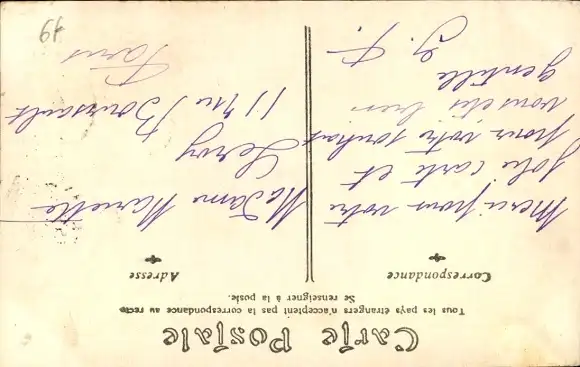 Carte Postale
Tous les pays étrangers n'acceptent pas la correspondance au recto
Se renseigner à la poste.
Correspondance
Merci pour votre
jolie carte et
pour votre souhait
vous êtes bien
gentille
J. F.
Adresse
Madame Marielle
Leroy
11 rue Boursault
Paris
49